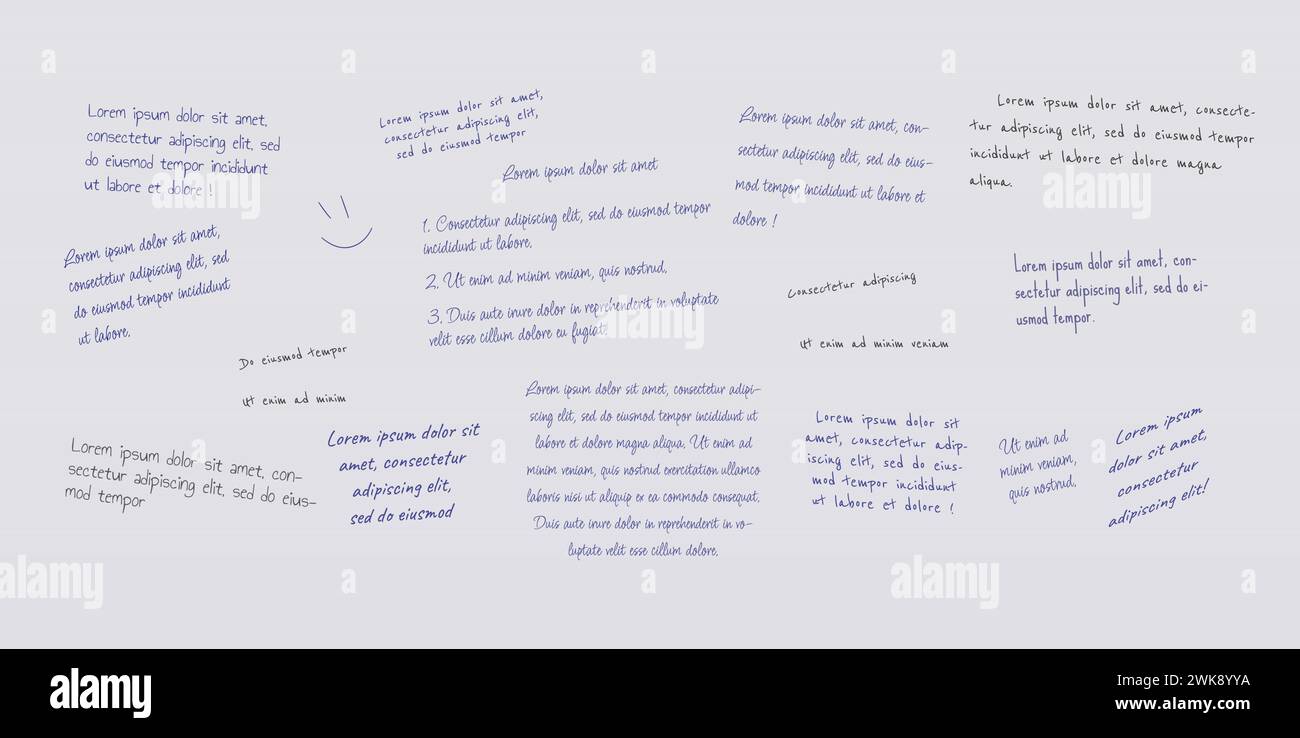 Lorem ipsum dolor sit amet,
consectetur adipiscing elit, sed
do eiusmod tempor incididunt
ut labore et dolore !
Lorem ipsum dolor sit amet,
consectetur adipiscing elit,
sed do eiusmod tempor
Lorem ipsum dolor sit amet
1. Consectetur adipiscing elit, sed do eiusmod tempor
incididunt ut labore.
2. Ut enim ad minim veniam, quis nostrud,
3. Duis aute irure dolor in reprehenderit in voluptate
velit esse cillum dolore eu fugiat.
Lorem ipsum dolor sit amet, con-
sectetur adipiscing elit, sed do eius-
mod tempor incididunt ut labore et
dolore !
Lorem ipsum dolor sit amet, consecte-
tur adipiscing elit, sed do eiusmod tempor
incididunt ut labore et dolore magna
aliqua.
Lorem ipsum dolor sit amet,
consectetur adipiscing elit, sed
do eiusmod tempor incididunt
ut labore.
Do eiusmod tempor
Ut enim ad minim
Consectetur adipiscing
Ut enim ad minim veniam
Lorem ipsum dolor sit amet, con-
sectetur adipiscing elit, sed do ei-
usmod tempor.
Lorem ipsum dolor sit amet, con-
sectetur adipiscing elit, sed do eius-
mod tempor
Lorem ipsum dolor sit
amet, consectetur
adipiscing elit,
sed do eiusmod
Lorem ipsum dolor sit amet, consectetur adipi-
scing elit, sed do eiusmod tempor incididunt ut
labore et dolore magna aliqua. Ut enim ad
minim veniam, quis nostrud exercitation ullamco
laboris nisi ut aliquip ex ea commodo consequat.
Duis aute irure dolor in reprehenderit in vo-
luptate velit esse cillum dolore.
Lorem ipsum dolor sit
amet, consectetur adip-
iscing elit, sed do eius-
mod tempor incididunt
ut labore et dolore !
Ut enim ad
minim veniam,
quis nostrud,
Lorem ipsum
dolor sit amet,
consectetur
adipiscing elit!
alamy
Image ID: 2WK8YYA
www.alamy.com